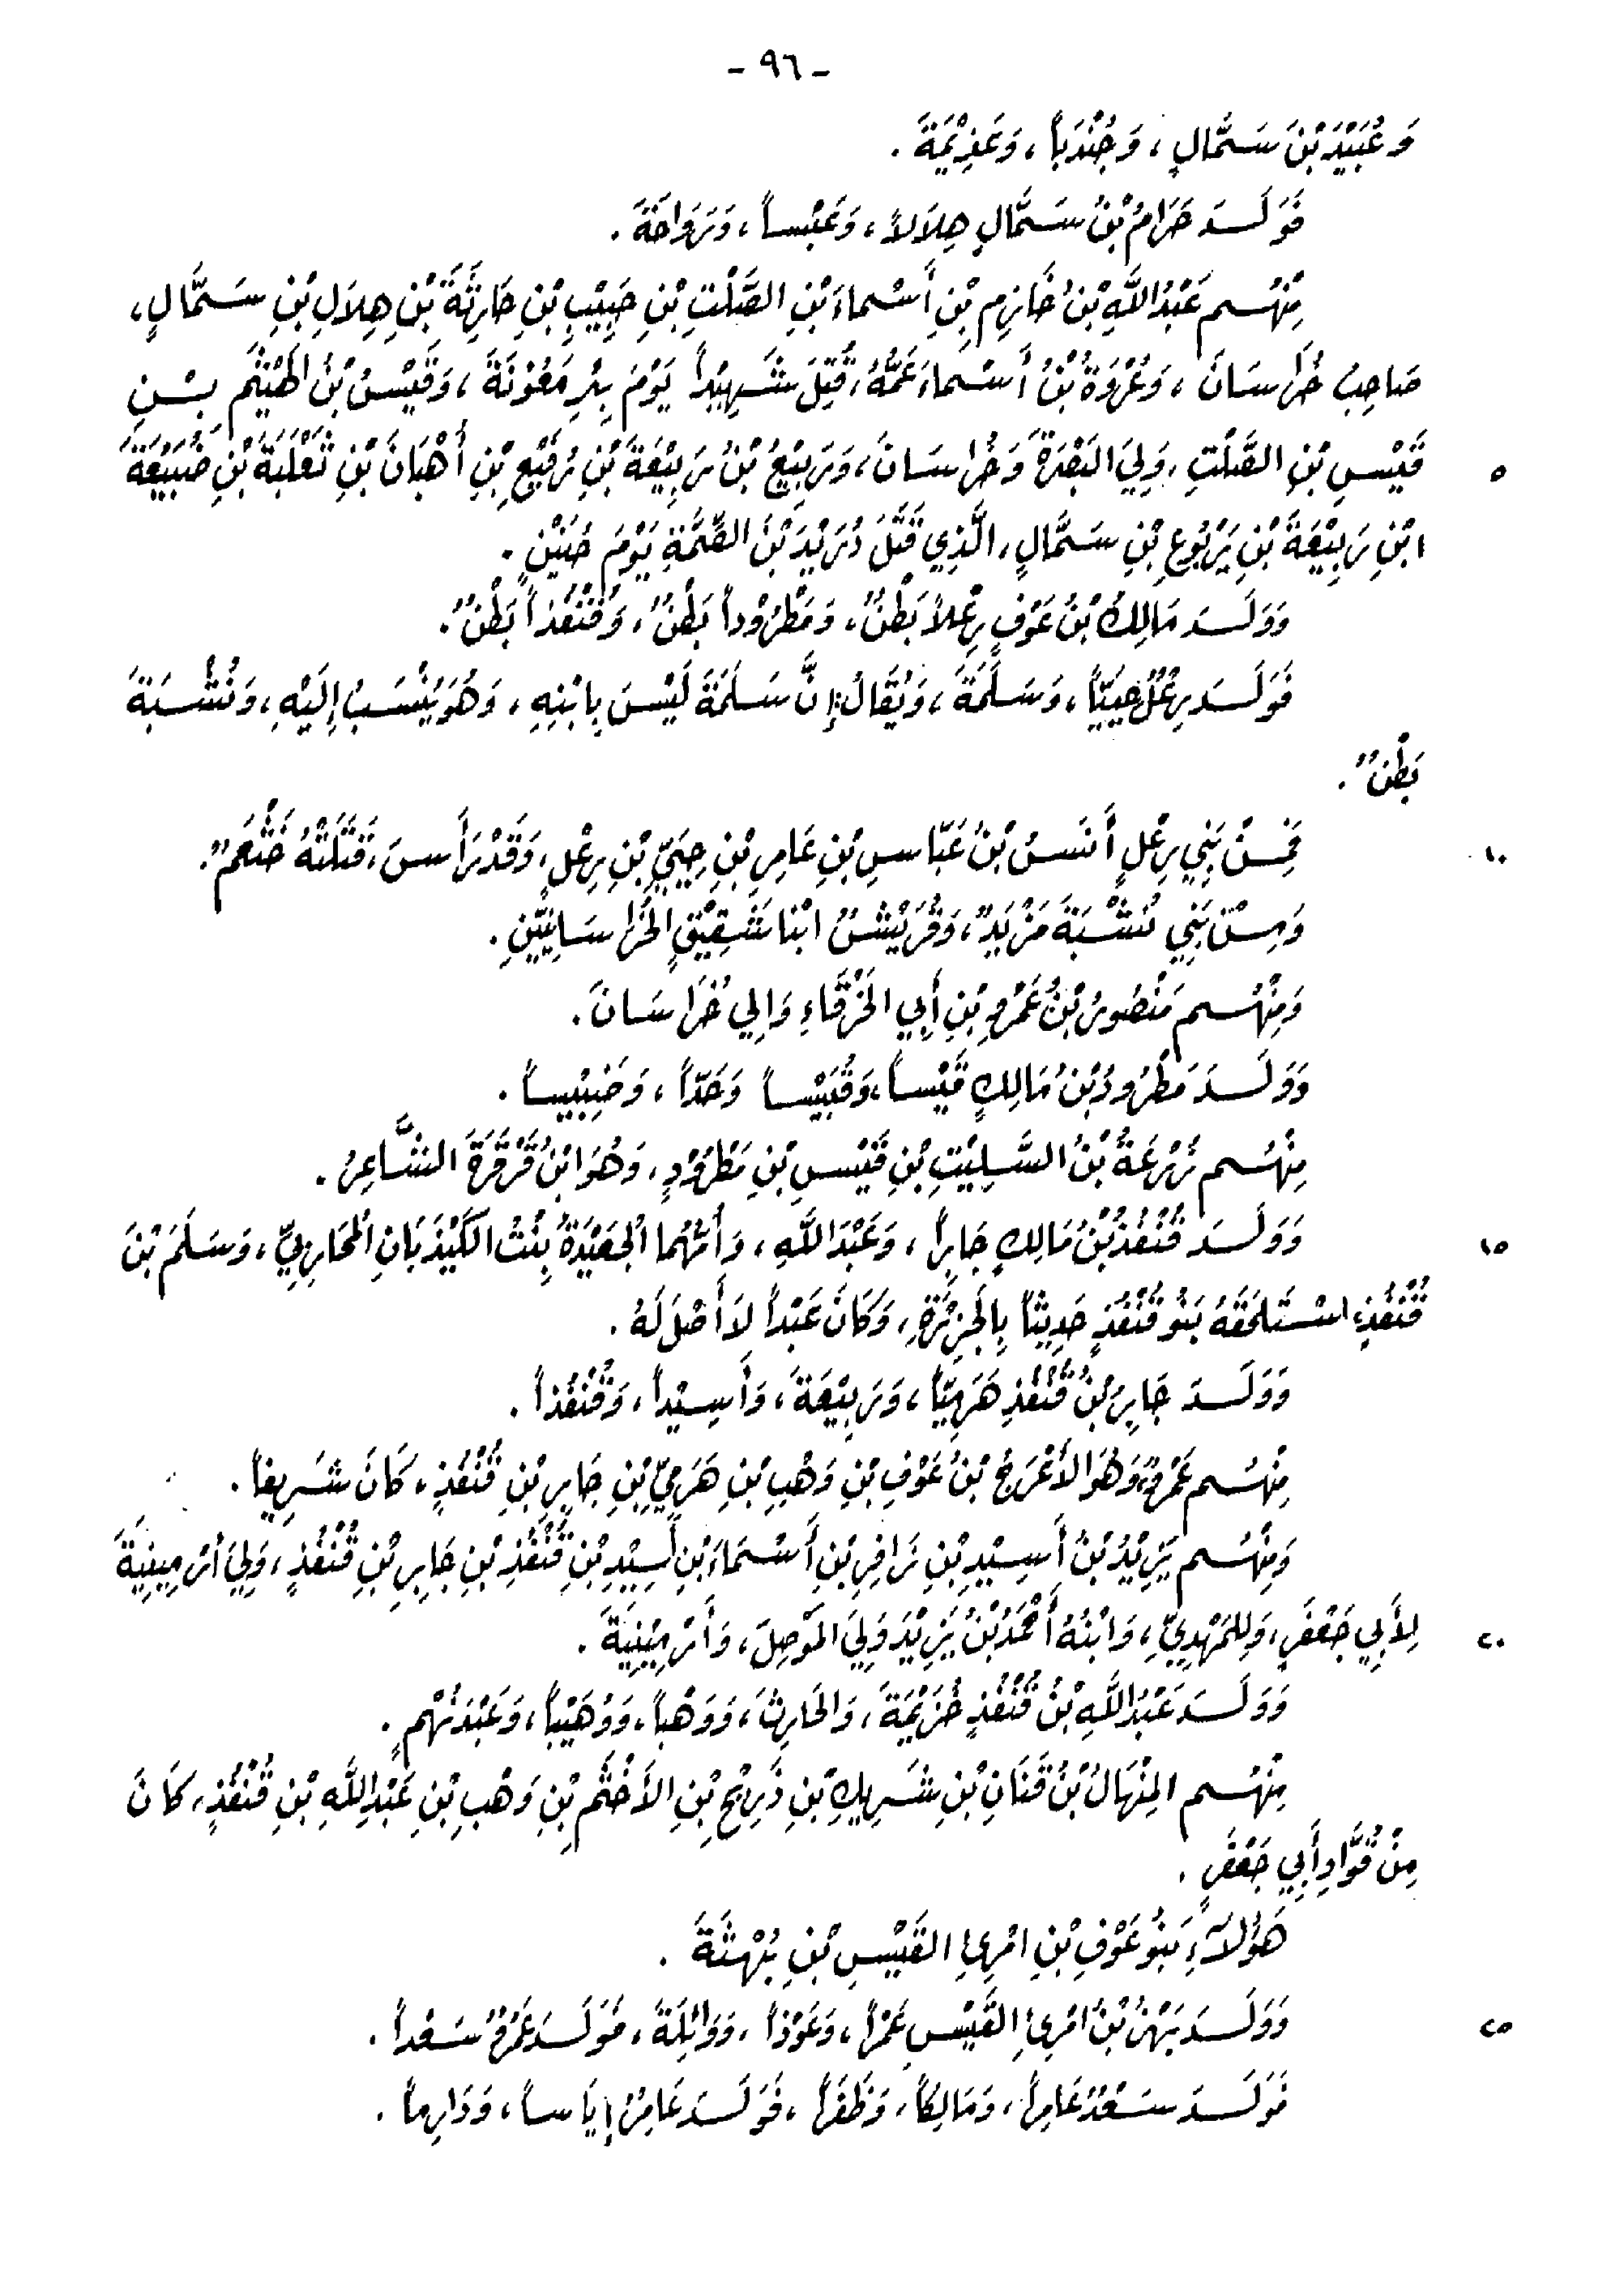 - ٩٦ -
وَعُبَيْدَ بْنَ سَمَّالٍ، وَجُنْدَباً، وَعَذِيْمَةَ.
فَوَلَدَ حَرَامُ بْنُ سَمَّالٍ هِلَالاً، وَعَبْساً، وَرَوَاحَةَ.
مِنْهُم عَبْدُ اللَّهِ بْنُ خَازِمِ بْنِ أَسْمَاءَ بْنِ الصَّلْتِ بْنِ حَبِيْبِ بْنِ حَارِثَةَ بْنِ هِلَالِ بْنِ سَمَّالٍ،
صَاحِبُ خُرَاسَانَ، وَعُرْوَةُ بْنُ أَسْمَاءَ عَمُّهُ، قُتِلَ شَهِيْداً يَوْمَ بِئْرِ مَعُوْنَةَ، وَقَيْسُ بْنُ الهَيْثَمِ بْنِ
قَيْسِ بْنِ الصَّلْتِ، وَلِيَ البَصْرَةَ وَخُرَاسَانَ، وَرَبِيْعُ بْنُ رَبِيْعَةَ بْنِ رُفَيْعِ بْنِ أُهْبَانَ بْنِ ثَعْلَبَةَ بْنِ ضُبَيْعَةَ ٥
ابْنِ رَبِيْعَةَ بْنِ يَرْبُوعِ بْنِ سَمَّالٍ، الَّذِي قَتَلَ دُرَيْدَ بْنَ الصِّمَّةِ يَوْمَ حُنَيْنٍ.
وَوَلَدَ مَالِكُ بْنُ عَوْفٍ رِعْلاً بَطْنٌ، وَمَطْرُوْداً بَطْنٌ، وَقُنْفُذاً بَطْنٌ.
فَوَلَدَ رِعْلٌ حِيَيّاً، وَسَلَمَةَ، وَيُقَالُ: إِنَّ سَلَمَةَ لَيْسَ بِابْنِهِ، وَهُوَ يُنْسَبُ إِلَيْهِ، وَنُشْبَةَ
بَطْنٌ.
فَمِنْ بَنِي رِعْلٍ أَنَسُ بْنُ عَبَّاسِ بْنِ عَامِرِ بْنِ حِيَيِّ بْنِ رِعْلٍ، وَقَدْ رَأَسَ، قَتَلَتْهُ خَثْعَمٌ. ١٠
وَمِنْ بَنِي نُشْبَةَ مَزْيَدٌ، وَقُرَيْشٌ ابْنَا شَقِيْقٍ الخُرَاسَانِيَّيْنِ.
وَمِنْهُم مَنْصُورُ بْنُ عَمْرِو بْنِ أَبِي الخَرْقَاءِ وَالِي خُرَاسَانَ.
وَوَلَدَ مَطْرُودُ بْنُ مَالِكٍ قَيْساً، وَقُبَيْساً وَحَدّاً، وَخُبَيْساً.
مِنْهُم زُرْعَةُ بْنُ السَّلِيْتِ بْنِ قَيْسِ بْنِ مَطْرُوْدٍ، وَهُوَ ابْنُ قَرْقَرَةَ الشَّاعِرُ.
وَوَلَدَ قُنْفُذُ بْنُ مَالِكٍ جَابِراً، وَعَبْدَ اللَّهِ، وَأُمُّهُمَا الجُعَيْدَةُ بِنْتُ الكَيْذَبَانِ المُحَارِبِيِّ، وَسَلَمَ بْنَ ١٥
قُنْفُذٍ اسْتَلْحَقَهُ بَنُو قُنْفُذٍ حَدِيثاً بِالجَزِيْرَةِ، وَكَانَ عَبْداً لَا أَصْلَ لَهُ.
وَوَلَدَ جَابِرُ بْنُ قُنْفُذِ هَرَمِيّاً، وَرَبِيْعَةَ، وَأَسِيْداً، وَقُنْفُذاً.
مِنْهُم عَمْرٌو، وَهُوَ الأَعْرَجُ بْنُ عَوْفِ بْنِ وَهْبِ بْنِ هَرَمِيِّ بْنِ جَابِرِ بْنِ قُنْفُذٍ، كَانَ شَرِيفاً.
وَمِنْهُم يَزِيْدُ بْنُ أَسِيْدِ بْنِ زَافِرِ بْنِ أَسْمَاءَ بْنِ أَسِيْدِ بْنِ قُنْفُذِ بْنِ جَابِرِ بْنِ قُنْفُذٍ، وَلِيَ أَرْمِينِيَةَ
لِأَبِي جَعْفَرٍ، وَلِلمَهْدِيِّ، وَابْنُهُ أَحْمَدُ بْنُ يَزِيْدَ وَلِيَ المَوْصِلَ، وَأَرْمِيْنِيَةَ. ٢٠
وَوَلَدَ عَبْدُ اللَّهِ بْنُ قُنْفُذٍ خُزَيْمَةَ، وَالحَارِثَ، وَوَهْباً، وَوُهَيْباً، وَعَبْدَ نُهْمٍ.
مِنْهُم المِنْهَالُ بْنُ قَنَانِ بْنِ شَرِيكِ بْنِ ذَرِيْحِ بْنِ الأَخْثَمِ بْنِ وَهْبِ بْنِ عَبْدِ اللَّهِ بْنِ قُنْفُذٍ، كَانَ
مِنْ قُوَّادِ أَبِي جَعْفَرٍ.
هَؤُلَاءِ بَنُو عَوْفِ بْنِ امْرِئِ القَيْسِ بْنِ بُهْثَةَ.
وَوَلَدَ بَهْزُ بْنُ امْرِئِ القَيْسِ عَمْراً، وَعَوْذاً، وَوَائِلَةَ، فَوَلَدَ عَمْرٌو سَعْداً. ٢٥
فَوَلَدَ سَعْدٌ عَامِراً، وَمَالِكاً، وَظَفَراً، فَوَلَدَ عَامِرٌ إِيَاساً، وَدَارِماً.